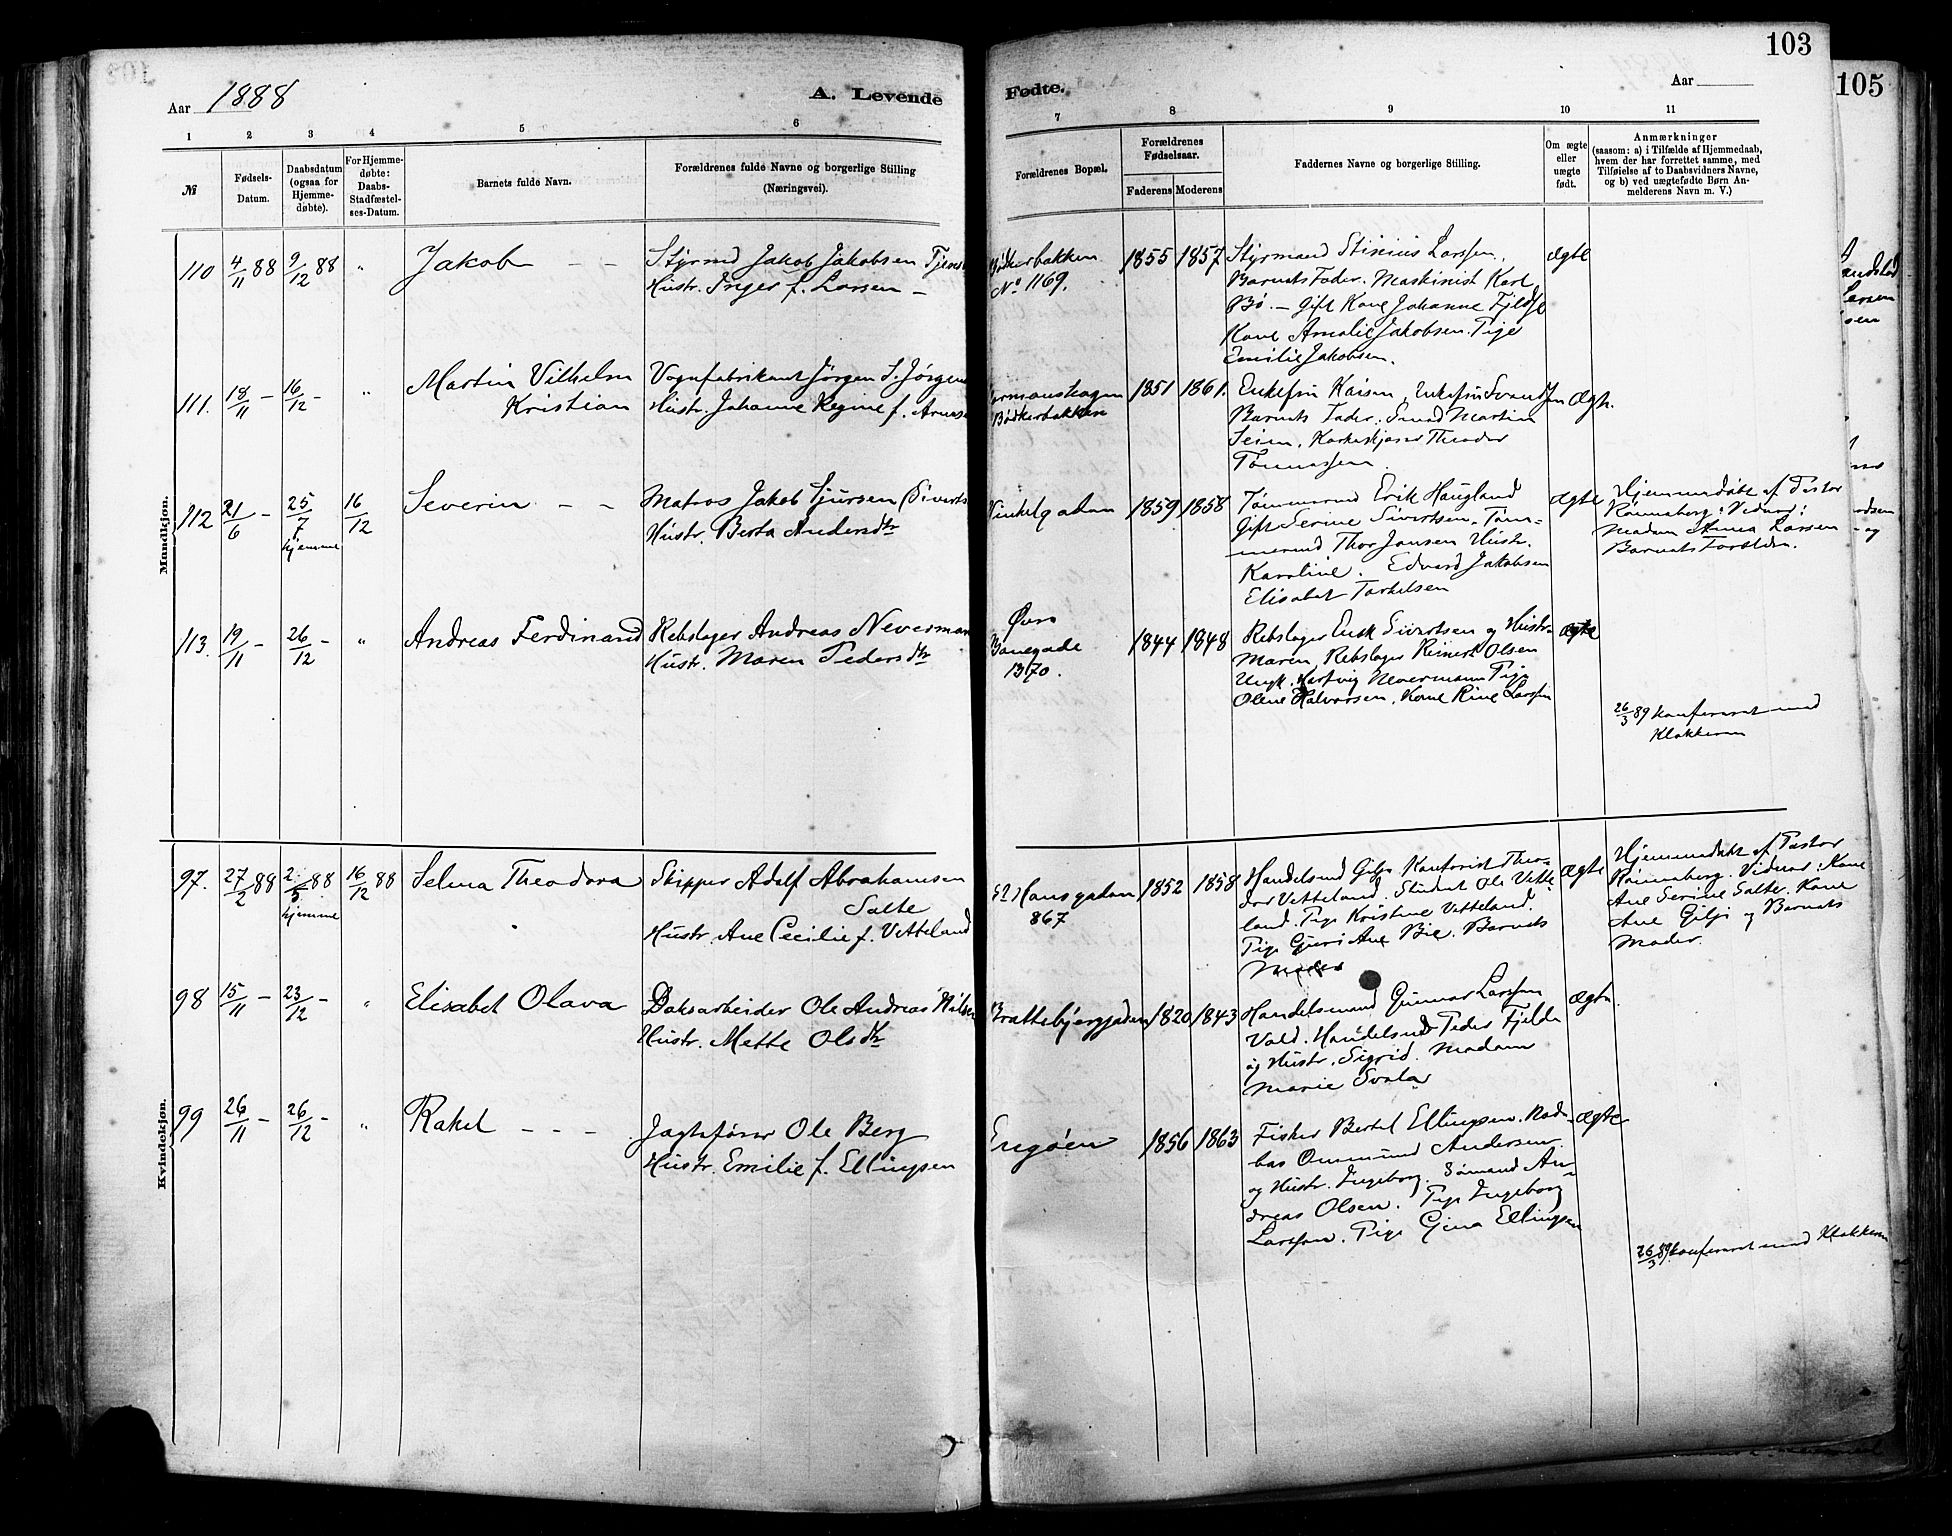 103
105
Aar 1888
A. Levende
Fødte.
Aar
1 2 3 4 5 6 7 8 9 10 11
№
Fødsels-
Datum.
Daabsdatum
(ogsaa for
Hjemme-
døbte).
For Hjemme-
døbte:
Daabs-
Stadfæstel-
ses-Datum.
Barnets fulde Navn.
Forældrenes fulde Navne og borgerlige Stilling
(Næringsvei).
Forældrenes Bopæl.
Forældrenes
Fødselsaar.
Faderens Moderens
Faddernes Navne og borgerlige Stilling.
Om ægte
eller
uægte
født.
Anmærkninger
(saasom: a) i Tilfælde af Hjemmedaab,
hvem der har forrettet samme, med
Tilføielse af to Daabsvidners Navne,
og b) ved uægtefødte Børn An-
melderens Navn m. V.)
Mandkjøn.
110 4/11 88 9/12 88 " Jakob - -
Styrmd Jakob Jakobsen
Hustr. Inger f. Larsen -
Bødkerbakken
No 1169.
1855 1857
Styrmand Stinius Larssen,
Barnets Fader. Maskinist Karl
Bø. - Gift Kone Johanne
Kone Amalie Jakobsen. Pige
Emilie Jakobsen.
ægte
111. 18/11 - 16/12 - " Martin Vilhelm
Kristian
Vognfabrikant Jørgen S. Jørgens
Hustr. Johanne Regine f.
Bødkerbakken
1851 1861.
Enkefru Kaisen, Enkefru
Barnets Fader. Smed Martin
Seim. Theodor
Tønnessen.
Ægte.
112 21/6 - 25/7 hjemme 16/12 Severin - -
Matros Jakob Sjursen (Siverts
Hustr. Berta Andersdtr
Vinkelgaden
1859 1858
Tømmermd Erik Haugland
Gift Serine Sivertsen. Tøm-
mermd Thor Jansen Hustr.
Karoline. Edvard Jakobsen
Elisabet Torkelsen
ægte
Hjemmedøbt af Pastor
Rønneberg. Vidner:
Madam Larsen
Barnets Forældre.
113. 19/11 - 26/12 - " Andreas Ferdinand
Rebslager Andreas Neverman
Hustr. Maren Pedersdtr
Øvre
Banegade
1370.
1844 1848
Rebslager Erik Sivertsen og Hustr.
Maren, Rebslager Reinert Olsen
Ungk. Hartvig Nevermann Pige
Olene Halvorsen, Kone Rine Larssen
ægte
26/3 89 konfereret med
Klokkeren
Kvindekjøn.
97. 27/2 88 2/5 88 hjemme 16/12 88 Selma Theodora
Skipper Adolf Abrahamsen
Salte
Hustr. Ane Cecilie f. Vetteland
St Hansgaden
867
1852 1858
Handelsmd Gilje Kontorist Theo-
dor Vetteland. Student Ole Vette-
land. Pige Kristine Vetteland.
Pige Guri Ane Bie. Barnets
Moder
Ægte
Hjemmedøbt af Pastor
Rønneberg. Vidner: Kone
Ane Serine Salte. Kone
Ane Gilje og Barnets
Moder.
98 15/11 - 23/12 - " Elisabet Olava
Daksarbeider Ole Andreas Nilsen
Hustr. Mette Olsdtr
Brattebjerggaden
1820 1843
Handelsmand Gunnar Larssen
Vold. Handelsmd Peder Fjelde
og Hustr. Sigrid. Madam
Marie Svala
Ægte.
99 26/11 - 26/12 - " Rakel - - -
Jagtefører Ole Berg
Hustr. Emilie f. Ellingsen
Engøen
1856 1863
Fisker Bertel Ellingsen.
Ommund Andersen
og Hustr. Ingeborg. Sømand An-
dreas Olsen. Pige Ingeborg
Larssen. Pige Gjena Ellingsen
Ægte
26/3 89 konfereret med Klokkeren